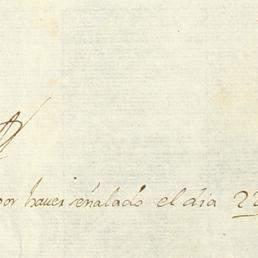 por haver señalado el dia 22